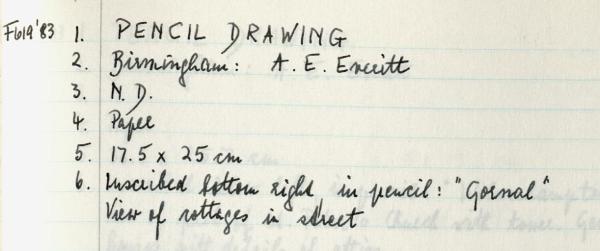 F619'83 1. PENCIL DRAWING
2. Birmingham: A. E. Everitt
3. N. D.
4. Paper
5. 17.5 x 25 cm
6. Inscribed bottom right in pencil: "Gornal"
View of cottages in street